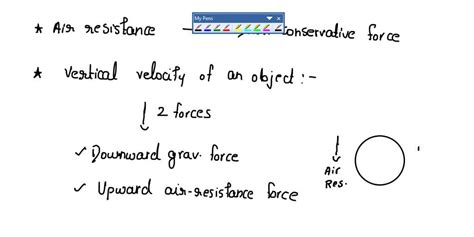 * Air resistance – conservative force
My Pens
* Vertical velocity of an object :-
2 forces
✓ Downward grav. force
✓ Upward air-resistance force
Air
Res.